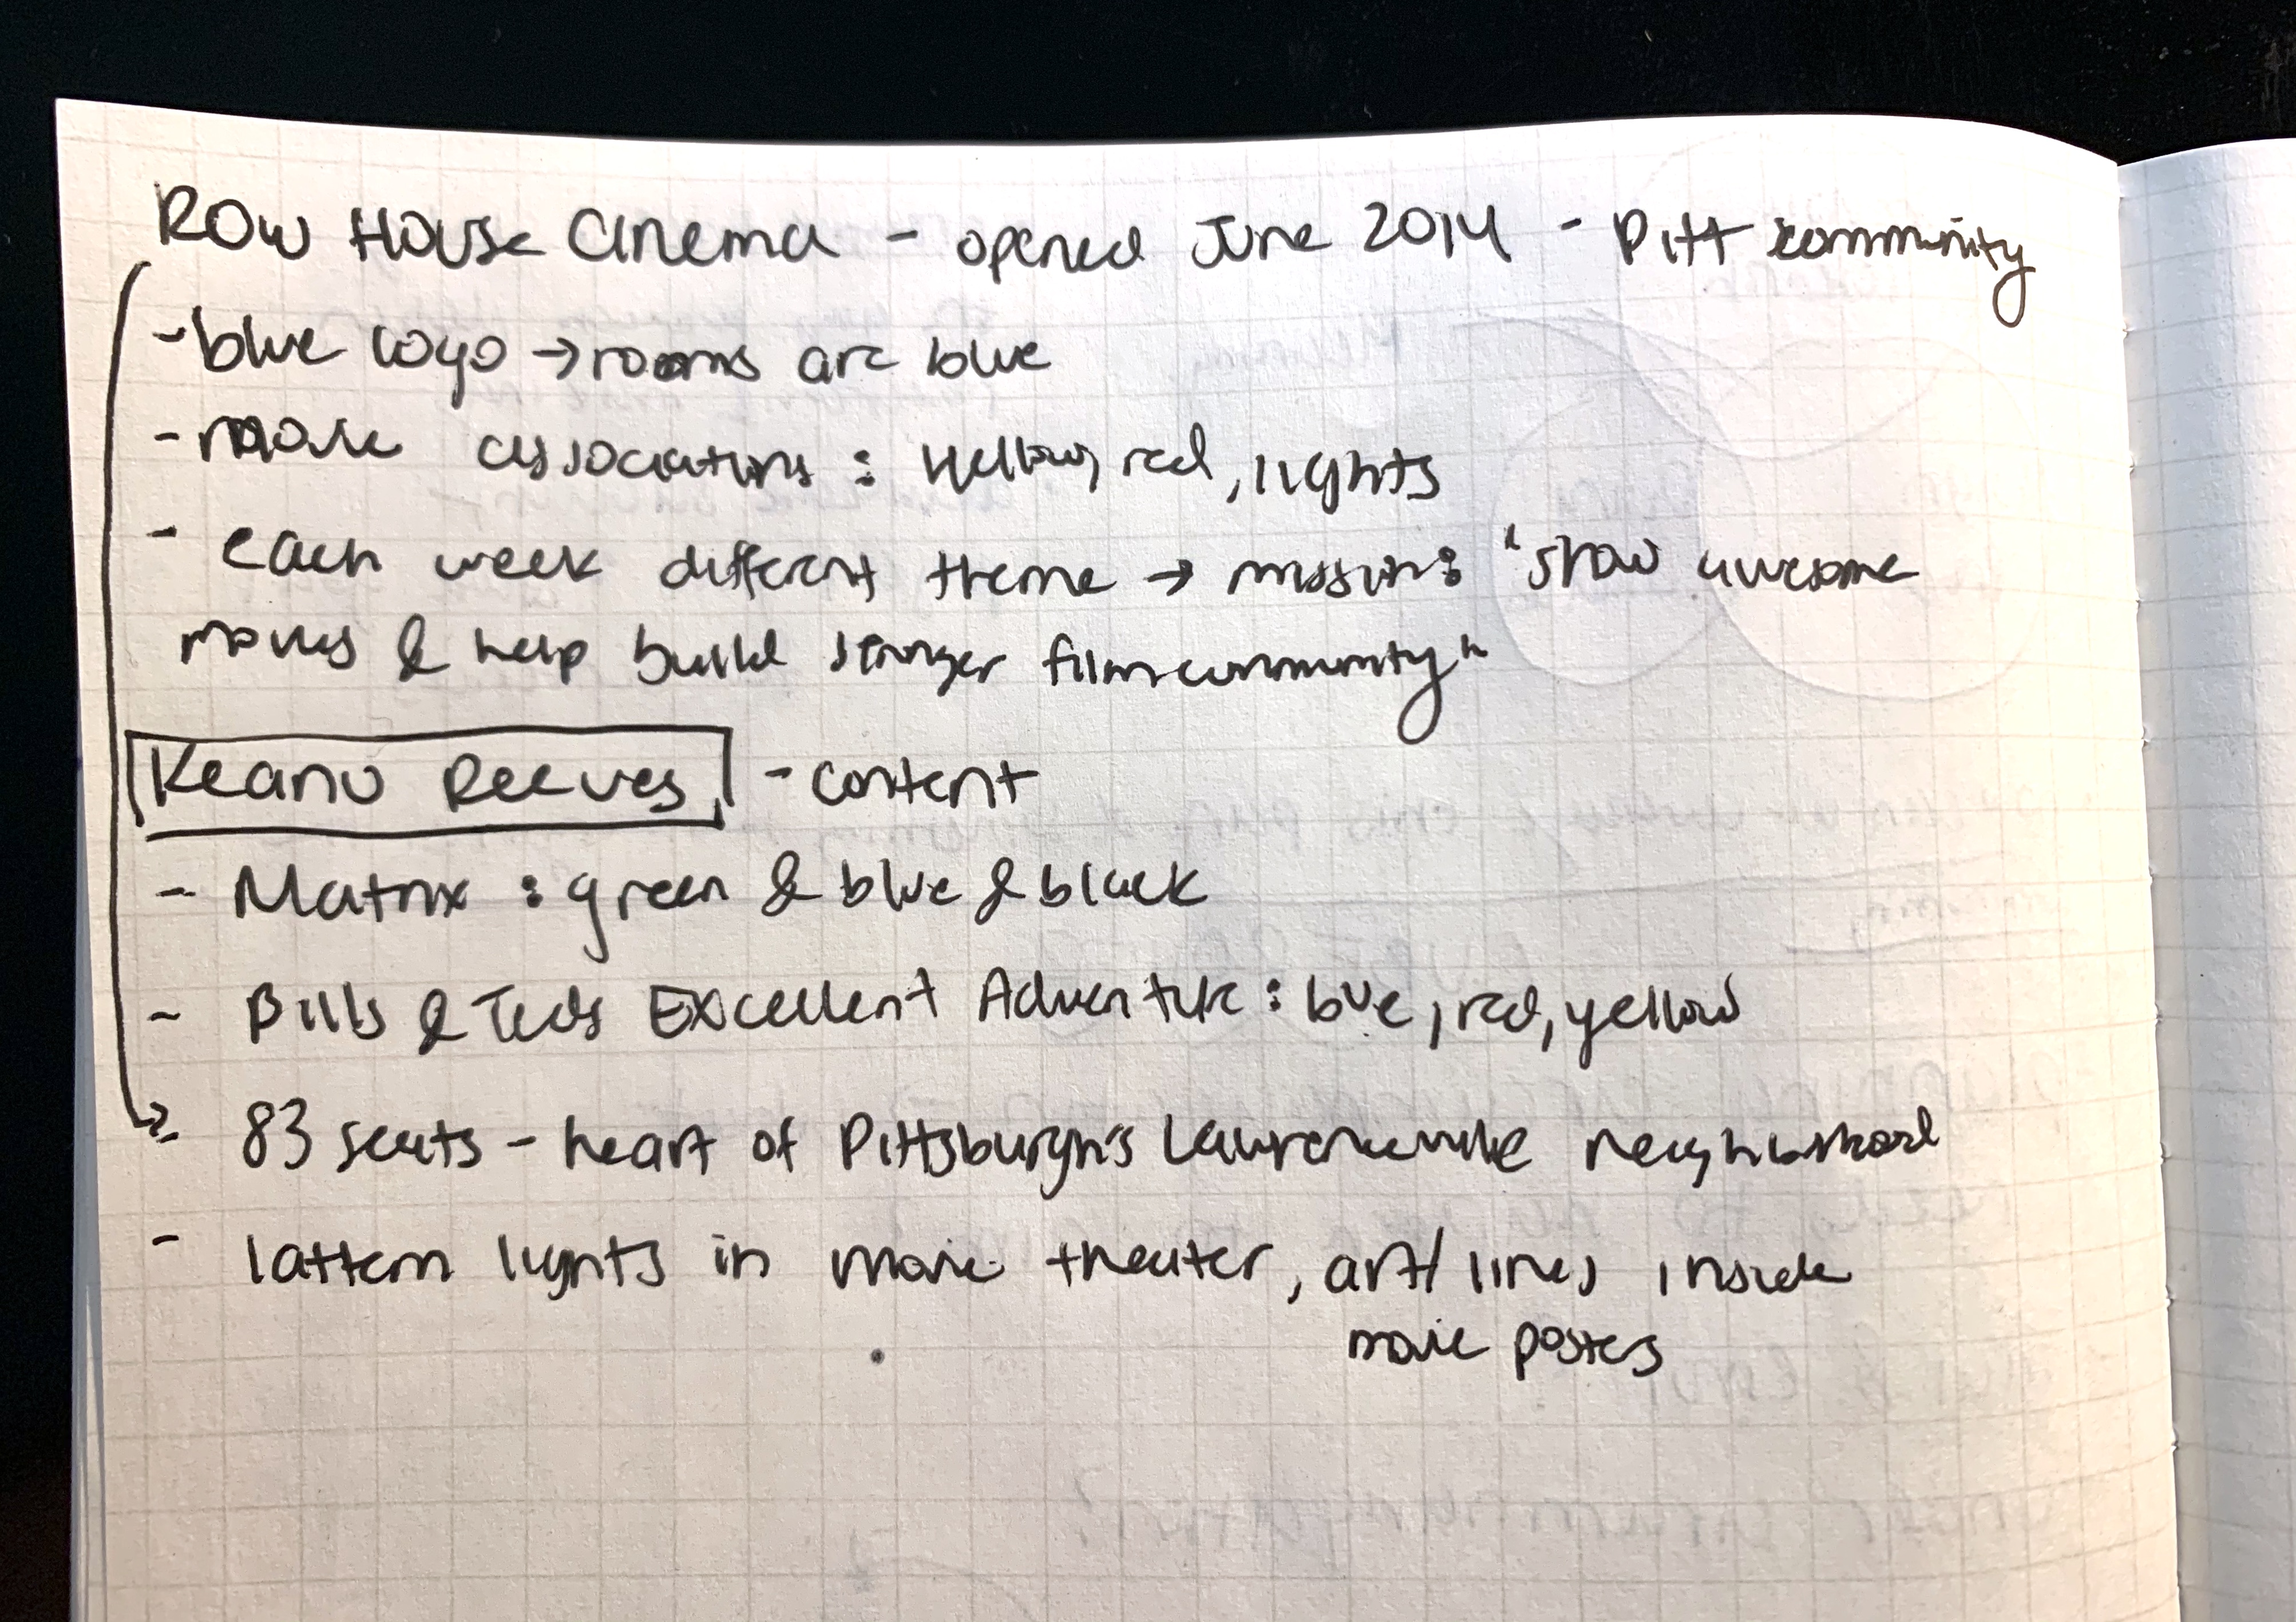 Row House Cinema - opened June 2014 - Pitt community
- blue logo → rooms are blue
- movie associations : Yellow, red, lights
- each week different theme → mission: "show awesome
movies & help build stronger film community"
Keanu Reeves - content
- Matrix : green & blue & black
- Bills & Teds Excellent Adventure : blue, red, yellow
- 83 seats - heart of Pittsburgh's Lawrenceville neighborhood
- lattern lights in movie theater, art/lines inside
movie posters